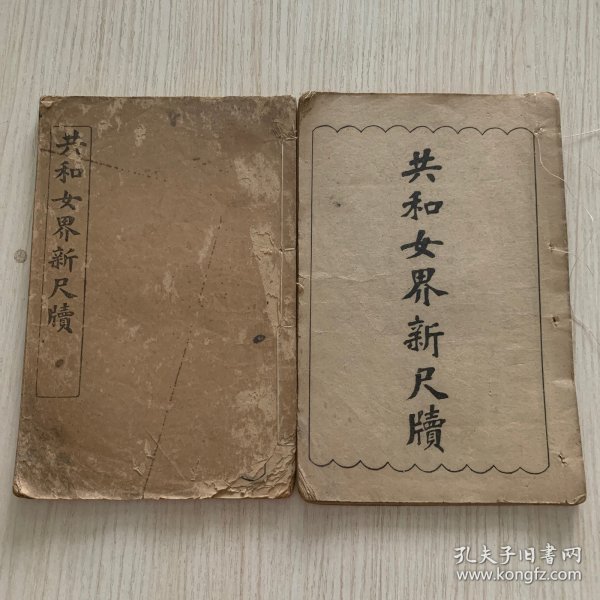 共和女界新尺牘
共和女界新尺牘
孔夫子旧书网
www.kongfz.com